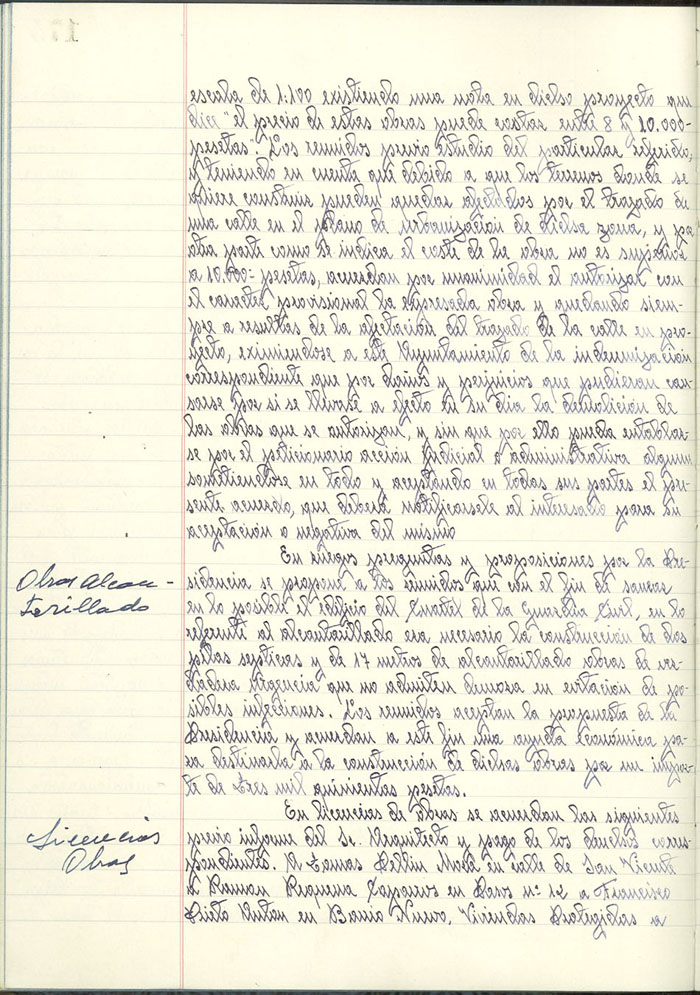 escala de 1:100 existiendo una nota en dicho proyecto que
dice "el precio de estas obras puede costar entre 8 y 10.000-
pesetas". Los reunidos previo estudio del particular referido,
y teniendo en cuenta que debido a que los terrenos donde se
quiere construir pueden quedar afectados por el trazado de
una calle en el plano de urbanización de dicha zona, y por
otra parte como se indica el coste de la obra no es superior
a 10.000- pesetas, acuerdan por unanimidad el autorizar con
el caracter provisional la expresada obra y quedando siem-
pre a resultas de la afectación del trazado de la calle en pro-
yecto, eximiendose a este Ayuntamiento de la indemnización
correspondiente que por daños y perjuicios que pudieran cau-
sarse por si se llevase a efecto en su dia la demolición de
las obras que se autorizan, y sin que por ello pueda entablar-
se por el peticionario acción judicial o administrativa alguna
sometiendose en todo y aceptando en todas sus partes el pre-
sente acuerdo, que deberá notificarsele al interesado para su
aceptación o negativa del mismo
En ruegos preguntas y proposiciones por la Pre-
Obras Alcan-
tarillado
sidencia se propone a los reunidos que con el fin de sanear
en lo posible el edificio del Cuartel de la Guardia Civil, en lo
referente al alcantarillado era necesario la construcción de dos
pilas septicas y de 17 metros de alcantarillado obras de ver-
dadera urgencia que no admiten demora en evitación de po-
sibles infecciones. Los reunidos aceptan la propuesta de la
Presidencia y acuerdan a este fin una ayuda económica pa-
ra destinarla a la construcción de dichas obras por un impor-
te de tres mil quinientas pesetas.
En licencias de obras se acuerdan las siguientes
Licencias
Obras
previo informe del Sr. Arquitecto y pago de los derechos corres-
pondientes. A Tomas Bellin Mora en calle de San Vicente
A Ramon Requena en n° 12 a Francisco
Prieto Anton en Barrio Nuevo. Viviendas Protegidas a